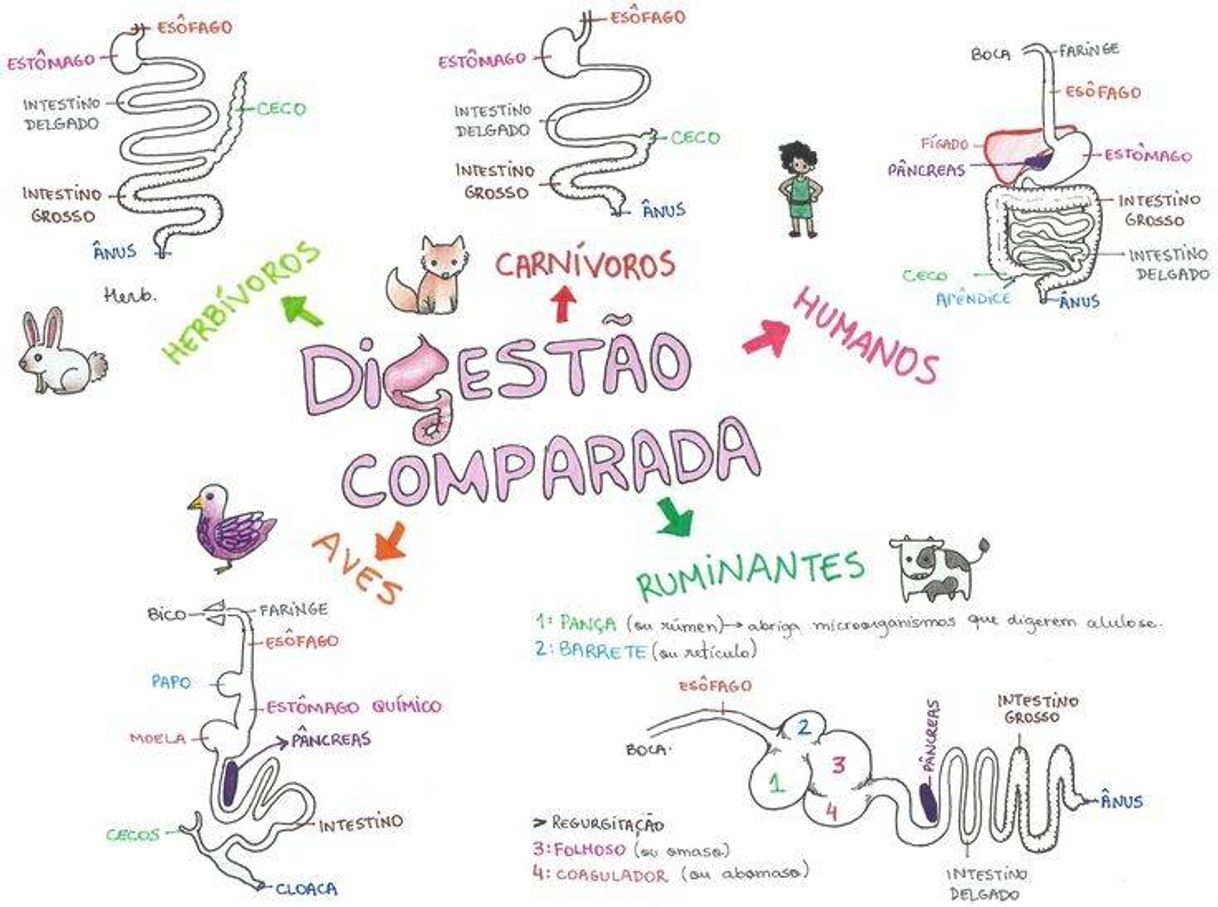 DIGESTÃO
COMPARADA
HERBÍVOROS
ESÔFAGO
ESTÔMAGO
INTESTINO
DELGADO
CECO
INTESTINO
GROSSO
ÂNUS
Herb.
CARNÍVOROS
ESÔFAGO
ESTÔMAGO
INTESTINO
DELGADO
CECO
INTESTINO
GROSSO
ÂNUS
HUMANOS
BOCA
FARINGE
ESÔFAGO
FÍGADO
PÂNCREAS
ESTÔMAGO
INTESTINO
GROSSO
INTESTINO
DELGADO
CECO
APÊNDICE
ÂNUS
AVES
BICO
FARINGE
ESÔFAGO
PAPO
ESTÔMAGO QUÍMICO
MOELA
PÂNCREAS
CECOS
INTESTINO
CLOACA
RUMINANTES
1: PANÇA (ou rúmen)→ abriga microorganismos que digerem alulose.
2: BARRETE (ou retículo)
ESÔFAGO
BOCA.
1
2
3
4
PÂNCREAS
INTESTINO
GROSSO
ÂNUS
INTESTINO
DELGADO
> REGURGITAÇÃO
3: FOLHOSO (ou omaso)
4: COAGULADOR (ou abomaso)